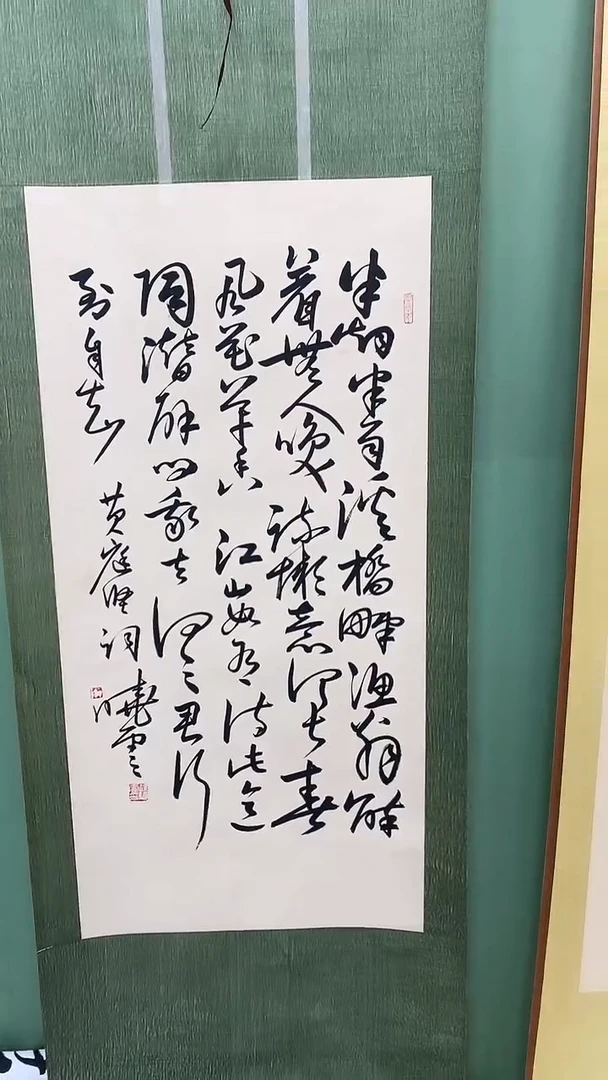 半烟半雨溪橋畔渔翁醉
着無人喚疏懒意何长春
风花草香江山如有待此意
陶潜解问我去何之君行
到自知 黄庭坚词 曉雲